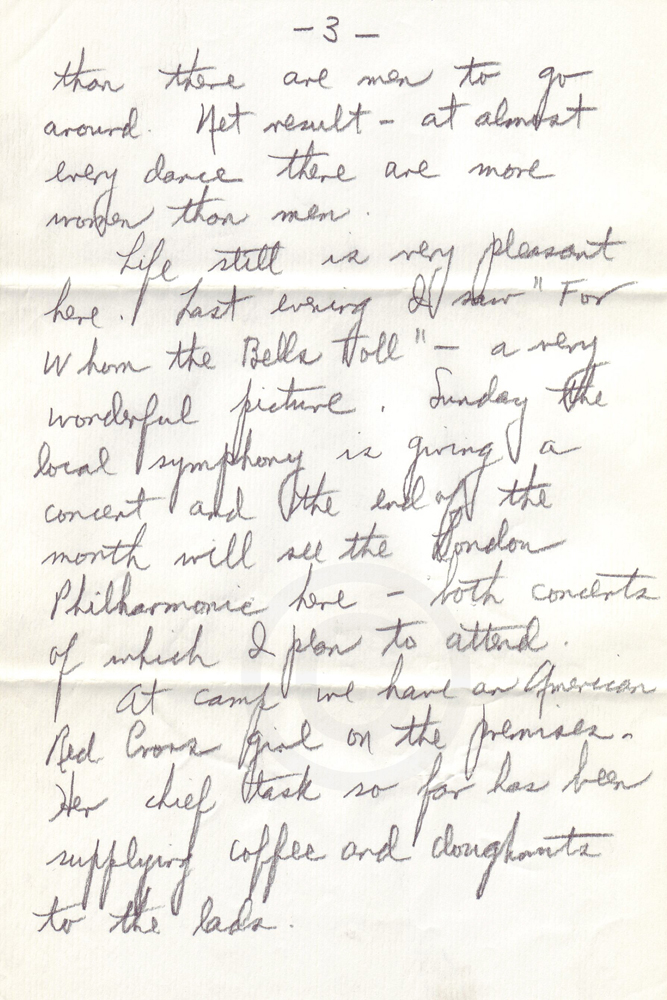 -3-
than there are men to go
around. Net result - at almost
every dance there are more
women than men.
Life still is very pleasant
here. Last evening I saw "For
Whom the Bells Toll" - a very
wonderful picture. Sunday the
local symphony is giving a
concert and the end of the
month will see the London
Philharmonic here - both concerts
of which I plan to attend.
At camp we have an American
Red Cross girl on the premises.
Her chief task so far has been
supplying coffee and doughnuts
to the lads.